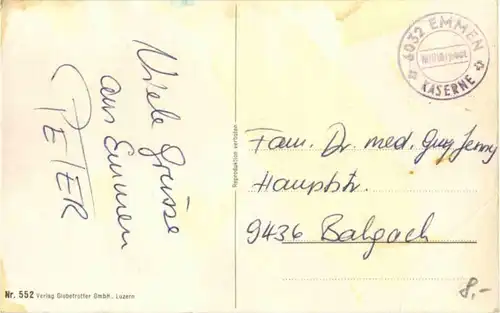 Viele Grüsse
aus Emmen
PETER
Nr. 552 Verlag Globetrotter GmbH., Luzern
Reproduktion verboten
6032 EMMEN
KASERNE
Fam. Dr. med. Jenny
Hauptstr.
9436 Balgach
8.-